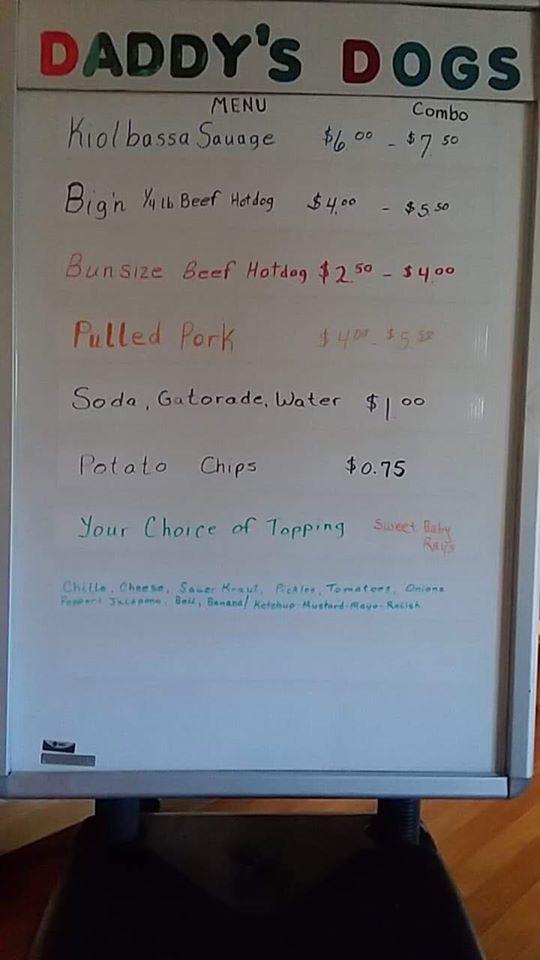 DADDY'S DOGS
MENU Combo
Kiolbassa Sauage $6.00 - $7.50
Big'n 1/4 lb Beef Hotdog $4.00 - $5.50
Bunsize Beef Hotdog $2.50 - $4.00
Pulled Pork $4.00 - $5.50
Soda, Gatorade, Water $1.00
Potato Chips $0.75
Your Choice of Topping Sweet Baby Ray's
Chille, Cheese, Sauer Kraut, Pickles, Tomatoes, Onions
Peppers Jalapeno, Bell, Banana/ Ketchup-Mustard-Mayo-Relish